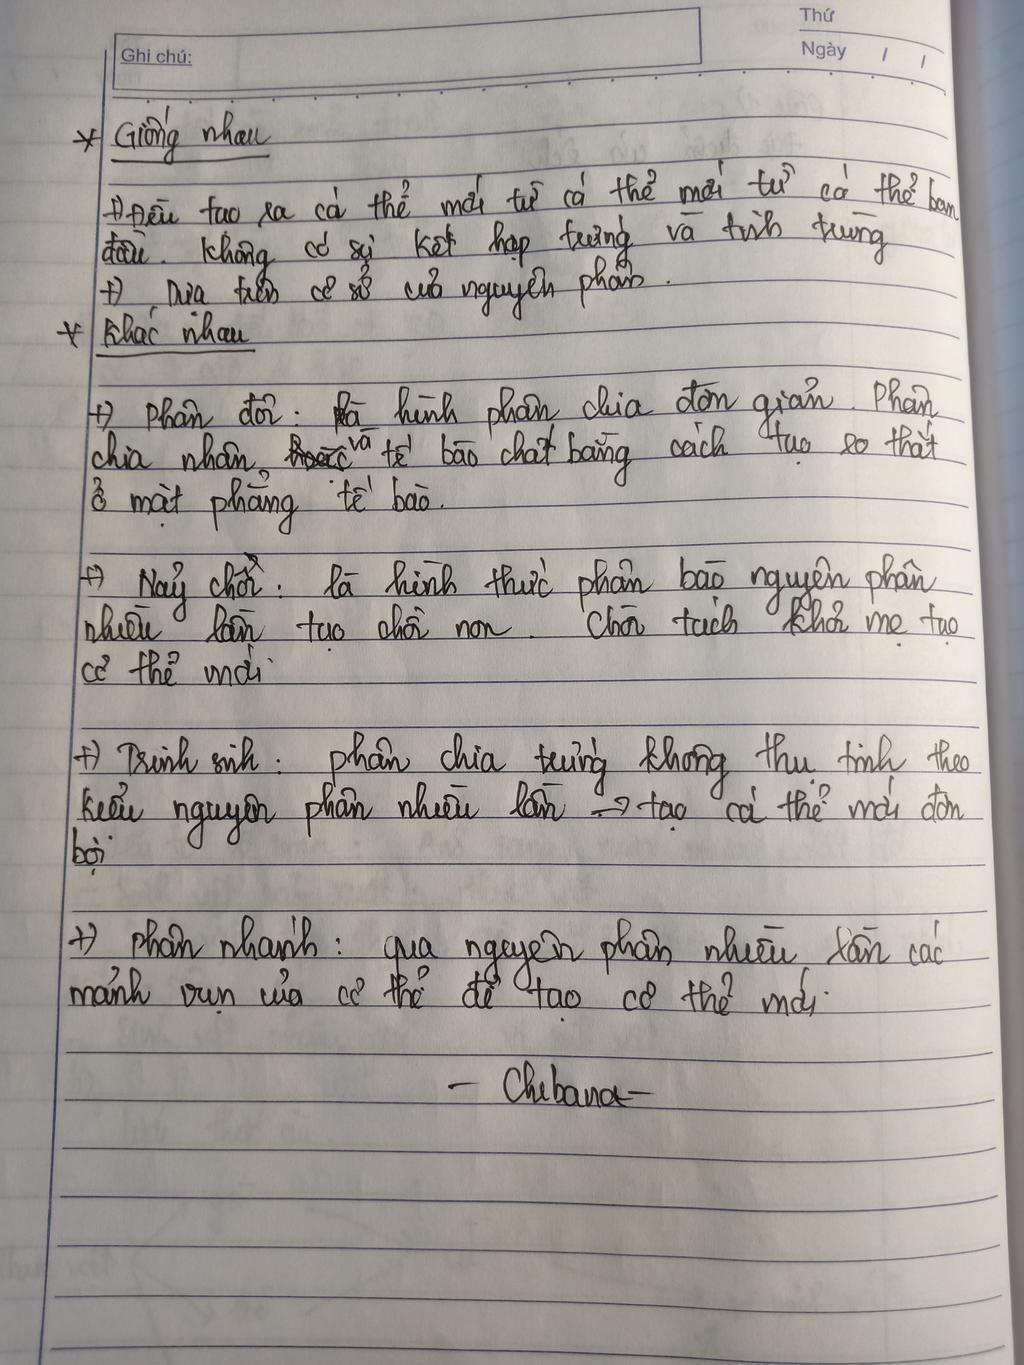 Thứ
Ghi chú:
Ngày / /
* Giống nhau
+) Đều tạo ra cá thể mới từ cá thể mới từ cá thể ban
đầu. Không có sự kết hợp trứng và tinh trùng
+) Dựa trên cơ sở của nguyên phân.
* Khác nhau
+) Phân đôi: là hình phân chia đơn giản. Phân
chia nhân và tế bào chất bằng cách tạo eo thắt
ở mặt phẳng tế bào.
+) Nảy chồi: là hình thức phân bào nguyên phân
nhiều lần tạo chồi non. Chồi tách khỏi mẹ tạo
cơ thể mới.
+) Trinh sinh: phân chia trứng không thụ tinh theo
kiểu nguyên phân nhiều lần → tạo cá thể mới đơn
bội
+) Phân nhánh: qua nguyên phân nhiều lần các
mảnh vụn của cơ thể để tạo cơ thể mới.
- Chibana -